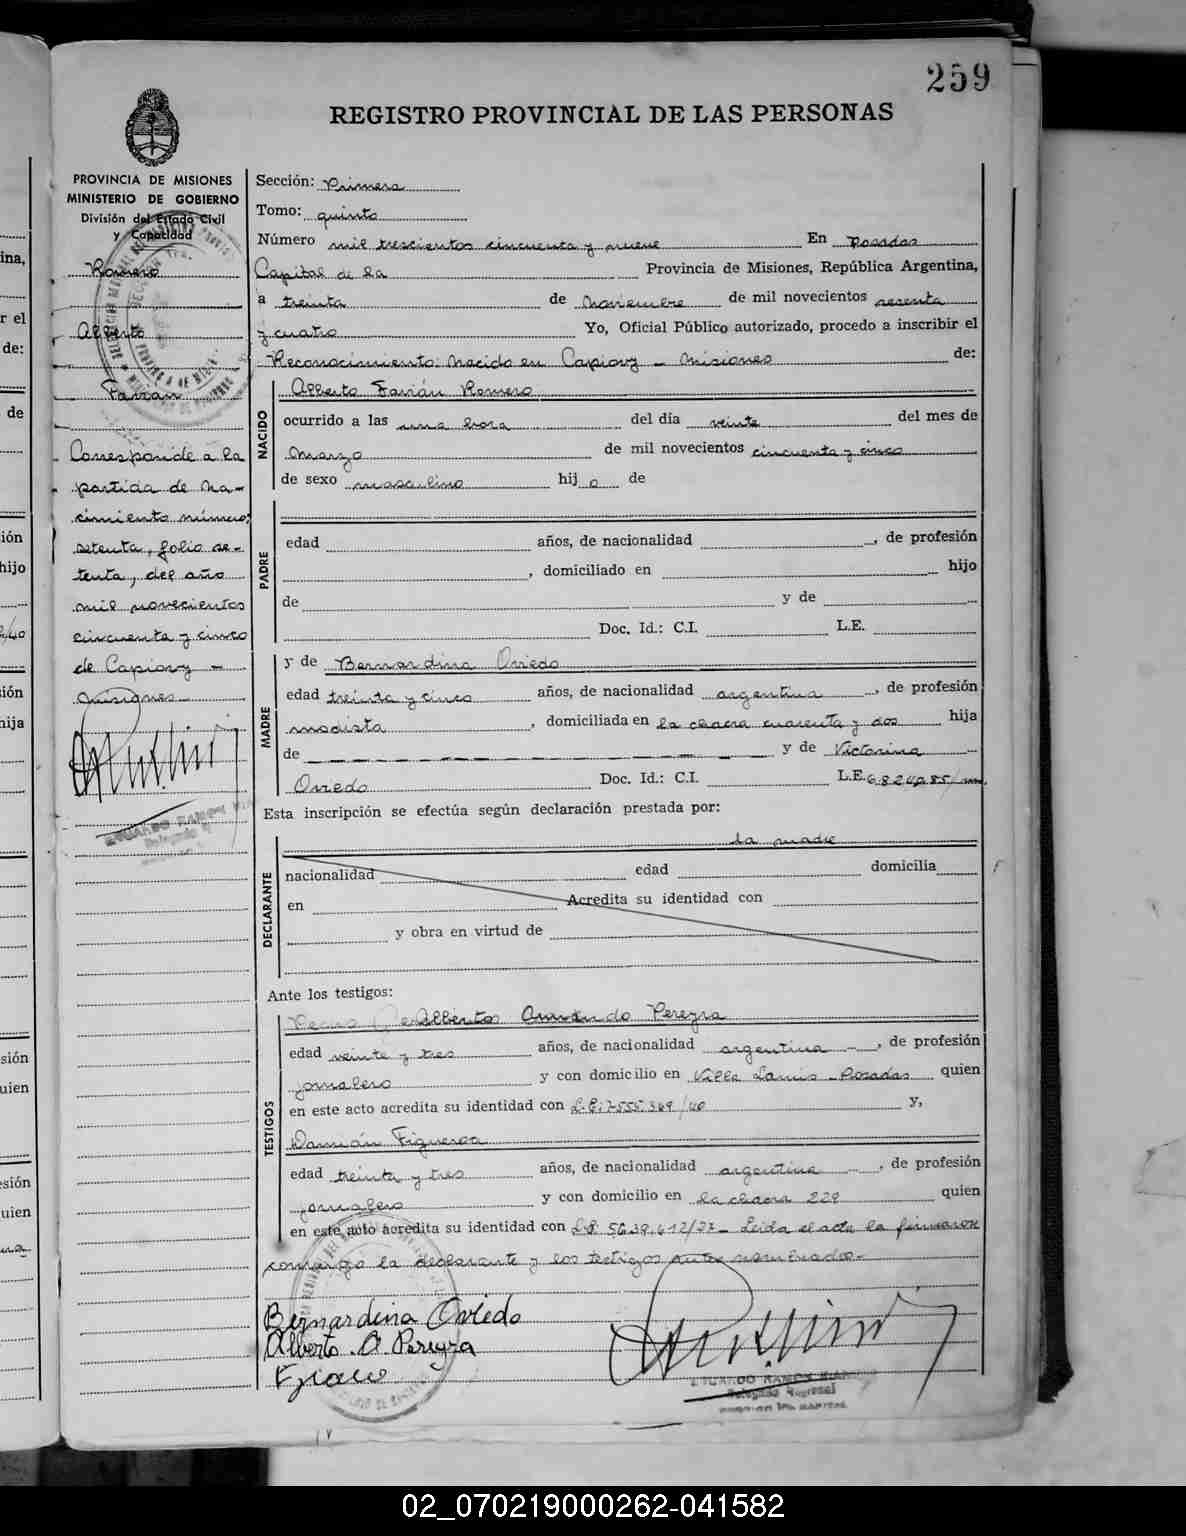 259
REGISTRO PROVINCIAL DE LAS PERSONAS
PROVINCIA DE MISIONES
MINISTERIO DE GOBIERNO
División del Estado Civil
y Capacidad
Romero
Alberto
Favián
Corresponde a la
partida de na-
cimiento número:
setenta, folio se-
tenta, del año
mil novecientos
cincuenta y cinco
de Capiovy -
Misiones
EDUARDO RAMON
Sección: Primera
Tomo: quinto
Número mil trescientos cincuenta y nueve En Posadas
Capital de la Provincia de Misiones, República Argentina,
a treinta de Noviembre de mil novecientos sesenta
y cuatro Yo, Oficial Público autorizado, procedo a inscribir el
Reconocimiento: Nacido en Capiovy - Misiones de:
NACIDO
Alberto Favián Romero
ocurrido a las una hora del día veinte del mes de
Marzo de mil novecientos cincuenta y cinco
de sexo masculino hij o de
PADRE
edad años, de nacionalidad , de profesión
, domiciliado en hijo
de y de
Doc. Id.: C.I. L.E.
MADRE
y de Bernardina Oviedo
edad treinta y cinco años, de nacionalidad argentina , de profesión
modista , domiciliada en la chacra cuarenta y dos hija
de y de Victorina
Oviedo Doc. Id.: C.I. L.E. 6.824.985/
Esta inscripción se efectúa según declaración prestada por:
DECLARANTE
la madre
nacionalidad edad domicilia
en Acredita su identidad con
y obra en virtud de
Ante los testigos:
TESTIGOS
Alberto Armando Pereyra
edad veinte y tres años, de nacionalidad argentina - , de profesión
jornalero y con domicilio en Villa Lanús - Posadas quien
en este acto acredita su identidad con L.E. 7.555.369/40 y,
Damián Figueroa
edad treinta y tres años, de nacionalidad argentina - , de profesión
jornalero y con domicilio en la chacra 229 quien
en este acto acredita su identidad con L.E. 5639.612/27 - Leída el acta la firmaron
conmigo la declarante y los testigos antes nombrados.-
Bernardina Oviedo
Alberto. A. Pereyra
EDUARDO RAMON
Delegado Regional
02_070219000262-041582